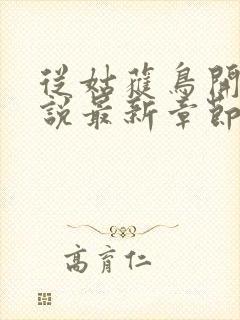 從姑獲鳥開
說最新章節
高育仁